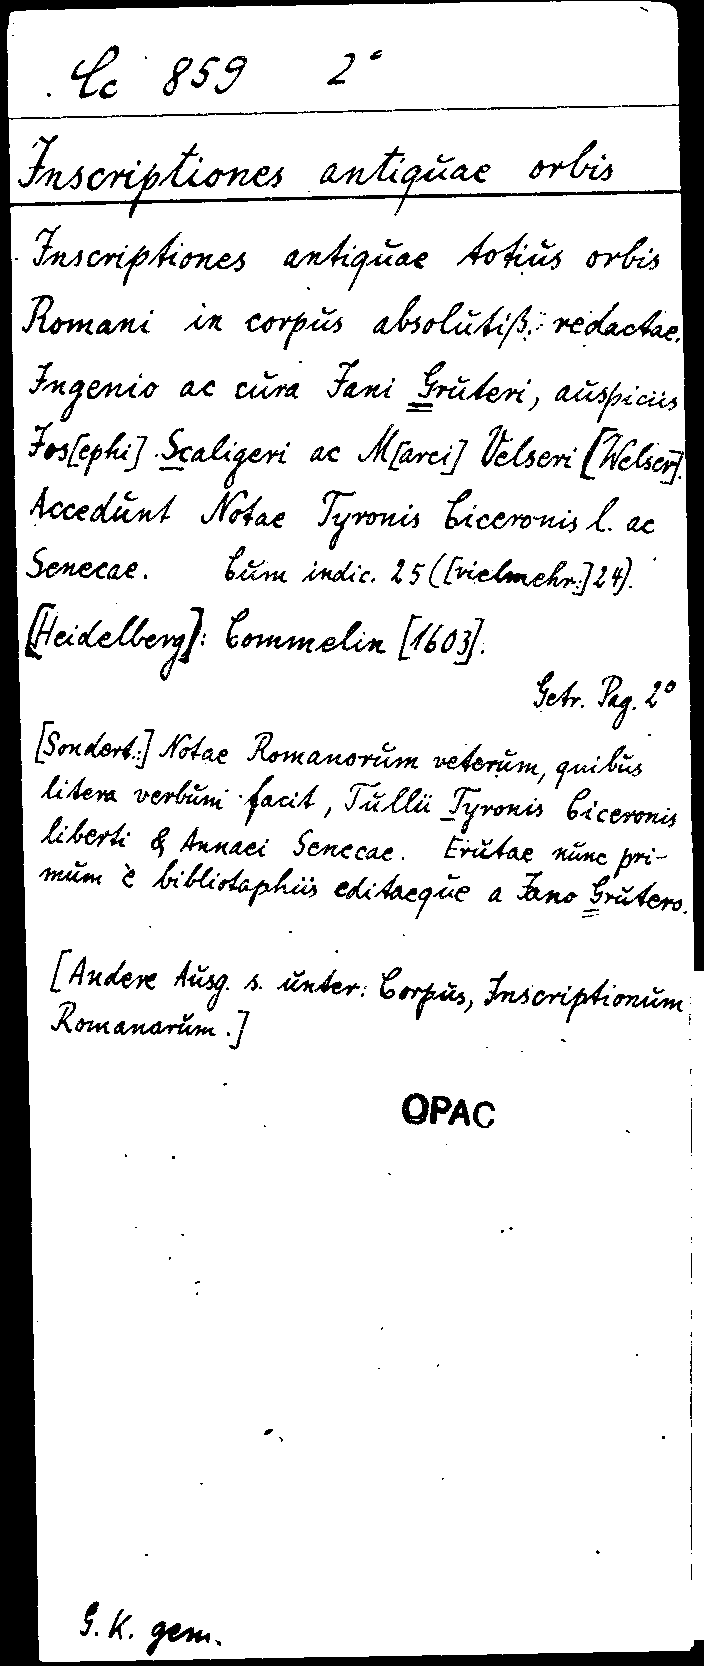 Cc 859 2°
Inscriptiones antiquae orbis
Inscriptiones antiquae totius orbis
Romani in corpus absolutiß. redactae.
Ingenio ac cura Jani Gruteri, auspiciis
Jos[ephi] Scaligeri ac M[arci] Velseri [Welser].
Accedunt Notae Tyronis Ciceronis l. ac
Senecae. Cum indic. 25 ([vielmehr:] 24).
[Heidelberg]: Commelin [1603].
Getr. Pag. 2°
[Sondert.:] Notae Romanorum veterum, quibus
litera verbum facit, Tullii Tyronis Ciceronis
liberti & Annaei Senecae. Erutae nunc pri-
mum è bibliotaphiis editaeque a Jano Grutero.
[Andere Ausg. s. unter: Corpus, Inscriptionum
Romanarum.]
OPAC
G. K. gem.